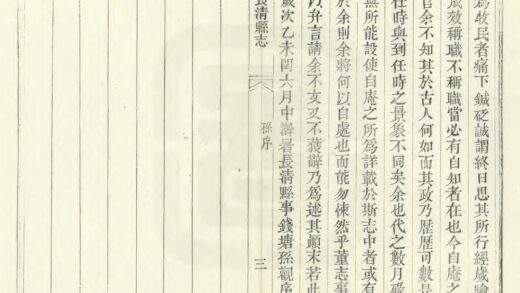 為牧民者痛下鍼砭誠謂終日思其所行經歲驗
成效稱職不稱職當必有自知者在也今自庵之
官余不知其於古人何如而其政乃歷歷可數是
任時與到任時之景象不同矣余也代之數月碌
無所能設使自庵之所為詳載於斯志中者或有
於余則余將何以自處也而能勿悚然乎董志事
以弁言請余不文又不獲辭乃為述其顛末若此
歲次乙未閏六月中澣署長清縣事錢塘孫觀序
長清縣志
孫序
三